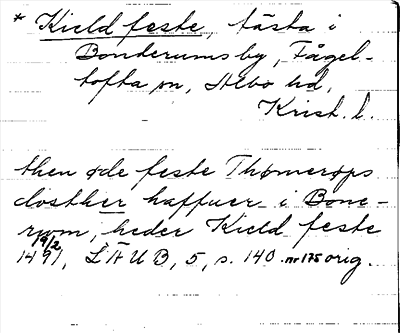 * Kield feste, tästa i
Bonderums by, Fågel-
tofta sn, Albo hd,
Krist. l.
then øde feste Thømerøps
closther haffuer i Bone-
rwm, heder Kield feste
19/2
1491, LÄUB, 5, s. 140 nr 175 orig.